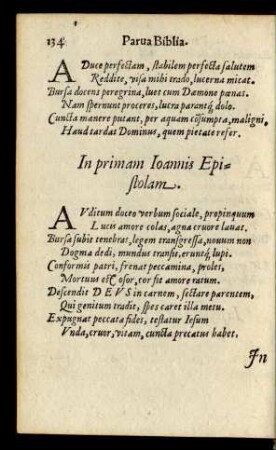 134 Parua Biblia.
A Duce perfectam, stabilem perfecta salutem
Reddite, visa mihi trado, lucerna micat.
Bursa docens peregrina, luet cum Dæmone pœnas.
Nam spernunt proceres, lucra parantq́; dolo.
Cuncta manere putant, per aquam cōsumpta, maligni,
Haud tardat Dominus, quem pietate refer.
In primam Ioannis Epi-
stolam.
AVditum doceo verbum sociale, propinquum
Lucis amore colas, agna cruore lauat.
Bursa subit tenebras, legem transgressa, nouum non
Dogma dedi, mundus transit, eruntq́; lupi.
Conformis patri, frenat peccamina, proles,
Mortuus est osor, cor sit amore ratum.
Descendit DEVS in carnem, sectare parentem,
Qui genitum tradit, spes caret illa metu.
Expugnat peccata fides, testatur Iesum
Vnda, cruor, vitam, cuncta precatus habet.
In